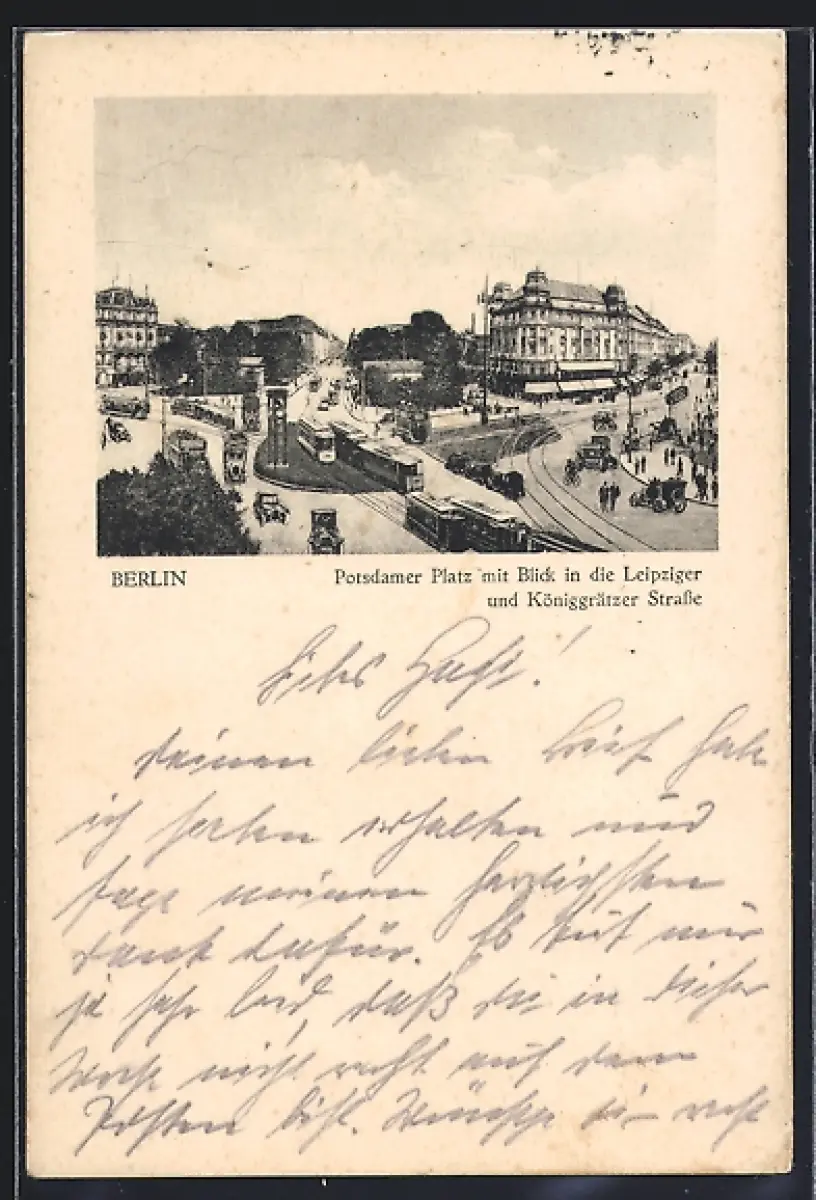 BERLIN
Potsdamer Platz mit Blick in die Leipziger
und Königgrätzer Straße
Liebes
Deinen lieben Brief habe
ich soeben erhalten und
sage meinen herzlichsten
Dank dafür. Es tut mir
ja sehr leid, daß du in dieser
Woche nicht recht auf dem
Posten bist. Wünsche dir recht